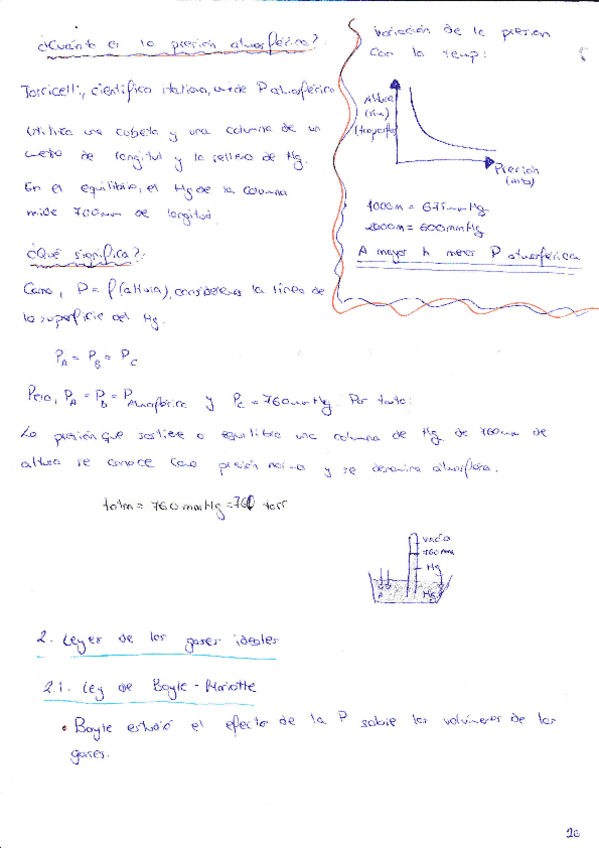 ¿Cuánto es la presión atmosférica?
Torricelli, científico italiano, mide P atmosférica
Utiliza una cubeta y una columna de un
metro de longitud y la rellena de Hg.
En el equilibrio, el Hg de la columna
mide 760mm de longitud.
¿Qué significa?
Como, P = f(altura), consideremos la línea de
la superficie del Hg.
PA = PB = PC
Pero, PA = PB = PAtmosférica y PC = 760mmHg. Por tanto:
La presión que sostiene o equilibra una columna de Hg de 760mm de
altura se conoce como presión normal y se denomina atmósfera.
1atm = 760 mmHg = 760 torr
Variación de la presión
con la temp:
Altura
(km)
Presión
(mb)
1000m = 675mmHg
2000m = 600mmHg
A mayor h menor P atmosférica
vacío
760mm
Hg
Hg
A
2. Leyes de los gases ideales
2.1. Ley de Boyle - Mariotte
• Boyle estudió el efecto de la P sobre los volúmenes de los
gases.